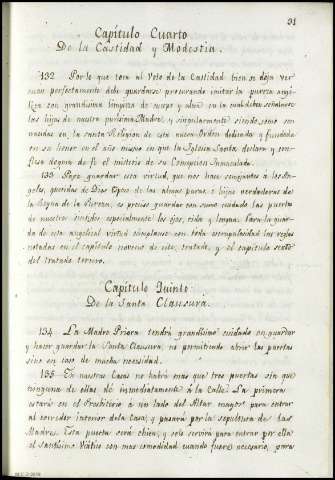 91
Capítulo Cuarto
De la Castidad y Modestia.
132. Por lo que toca al Voto de la Castidad bien se deja ver
cuan perfectamente debe guardarse procurando imitar la pureza angé-
lica con grandísima limpieza de cuerpo y alma en la cual deben señalarse
las hijas de nuestra purísima Madre, y singularmente siendo, como son
nacidas en la santa Religion de esta nueva Orden dedicada y fundada
en su honor en el año mismo en que la Iglesia Santa declaró y con-
fesó dogma de fe el misterio de su Concepcion Inmaculada.
133. Para guardar esta virtud, que nos hace semejantes á los An-
geles, queridas de Dios Esposo de las almas puras, é hijas verdaderas del
la Reyna de la Pureza, es preciso guardar con sumo cuidado las puertas
de nuestros sentidos especialmente los ojos, oido y lengua. Para la guar-
da de esta angelical virtud cúmplanse con toda escrupulosidad las reglas
notadas en el capítulo noveno de este tratado, y el capítulo sexto
del tratado tercero.
Capítulo Quinto
De la Santa Clausura.
134. La Madre Priora tendrá grandísimo cuidado en guardar
y hacer guardar la Santa Clausura, no permitiendo abrir las puertas
sino en caso de mucha necesidad.
135. En nuestras Casas no habrá mas que tres puertas sin que
ninguna de ellas dé inmediatamente á la Calle. La primera
estará en el Presbiterio á un lado del Altar mayor para entrar
al corredor interior de la Casa, y pasará por la sepultura de las
Madres. Esta puerta será chica, y solo servirá para entrar por ella
el santísimo Viático con mas comodidad cuando fuere necesario, para